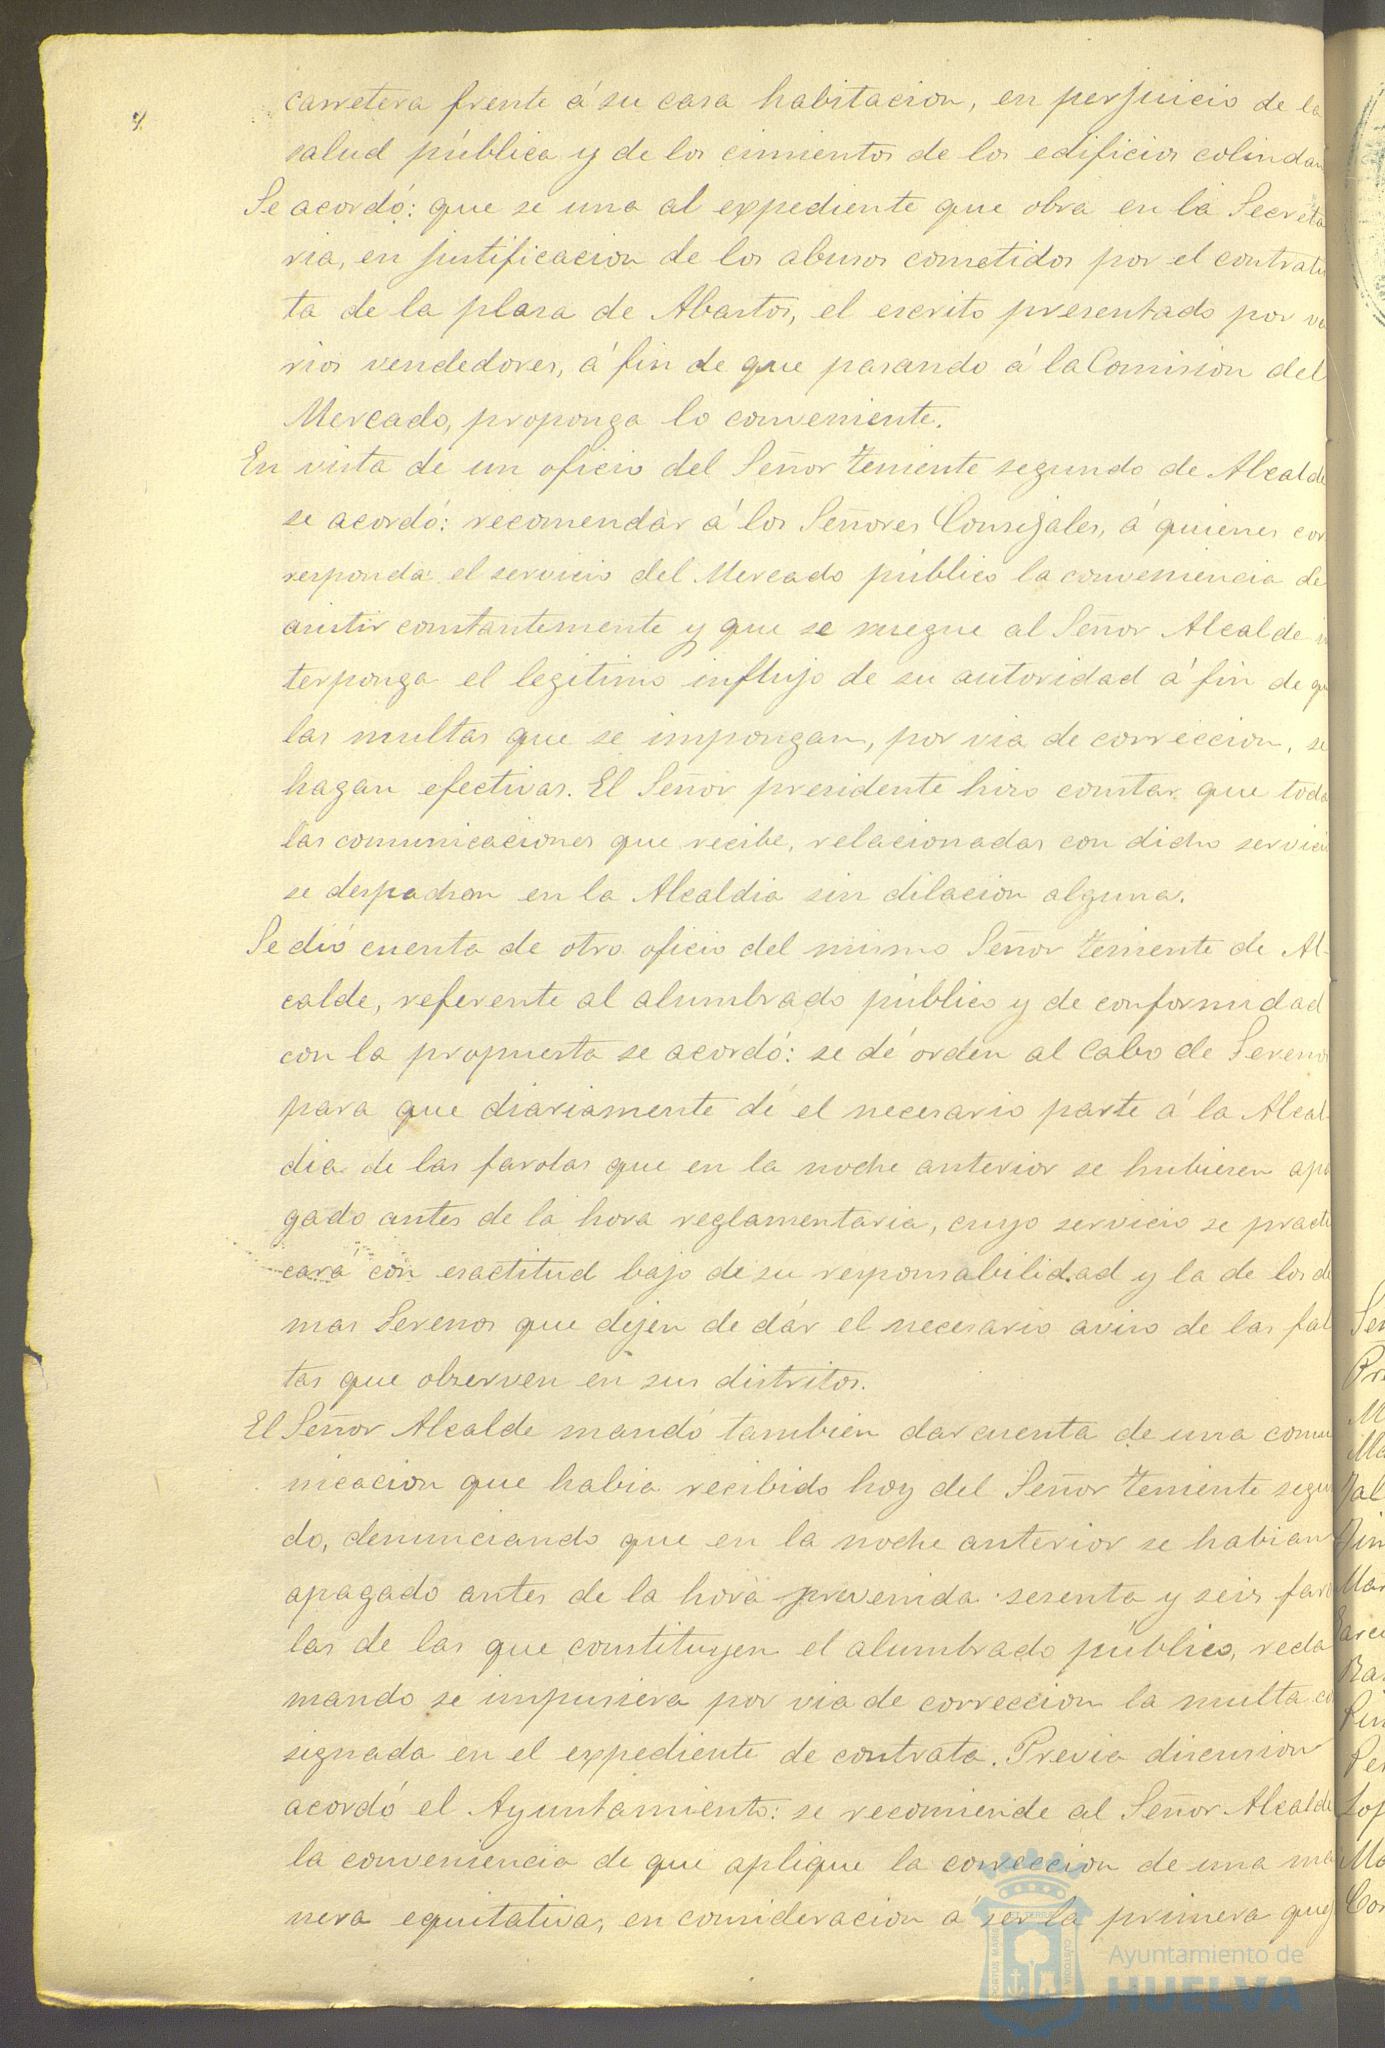 carretera frente á su casa habitacion, en perjuicio de la
salud pública y de los cimientos de los edificios colindan
Se acordó: que se una al expediente que obra en la Secreta
ria, en justificacion de los abusos cometidos por el contratis
ta de la plasa de Abastos, el escrito presentado por va
rios vendedores, á fin de que pasando á la Comision del
Mercado, proponga lo conveniente.
En vista de un oficio del Señor Teniente segundo de Alcalde
se acordó: recomendar á los Señores Consejales, á quienes cor
responda el servicio del Mercado público la conveniencia de
asistir constantemente y que se ruegue al Señor Alcalde in
terponga el legitimo influjo de su autoridad á fin de que
las multas que se impongan, por via de correccion, se
hagan efectivas. El Señor presidente hiso constar que todas
las comunicaciones que recibe, relacionadas con dicho servicio
se despachan en la Alcaldia sin dilacion alguna.
Se dió cuenta de otro oficio del mismo Señor Teniente de Al-
calde, referente al alumbrado público y de conformidad
con la propuesta se acordó: se dé orden al Cabo de Serenos
para que diariamente dé el necesario parte á la Alcal-
dia de las farolas que en la noche anterior se hubiesen apa
gado antes de la hora reglamentaria, cuyo servicio se practi
cará con esactitud bajo de su responsabilidad y la de los de
mas Serenos que dejen de dár el necesario aviso de las fal
tas que observen en sus distritos.
El Señor Alcalde mandó tambien dar cuenta de una comu
nicacion que habia recibido hoy del Señor Teniente segun
do, denunciando que en la noche anterior se habian
apagado antes de la hora prevenida sesenta y seis faro
las de las que constituyen el alumbrado público, recla
mando se impusiera por via de correccion la multa con
signada en el expediente de contrata. Previa discusion
acordó el Ayuntamiento: se recomiende al Señor Alcalde
la conveniencia de que aplique la correccion de una ma
nera equitativa, en consideracion á ser la primera quej
Ayuntamiento de
HUELVA